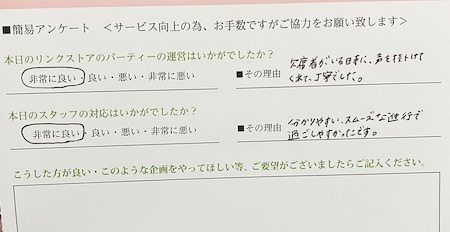 ■簡易アンケート ＜サービス向上の為、お手数ですがご協力をお願い致します＞
本日のリンクストアのパーティーの運営はいかがでしたか？
非常に良い・良い・悪い・非常に悪い
■その理由
欠席者がいる日本に、声を掛けて
くれて、丁寧でした。
本日のスタッフの対応はいかがでしたか？
非常に良い・良い・悪い・非常に悪い
■その理由
分かりやすい、スムーズな進行で
過ごしやすかったです。
こうした方が良い・このような企画をやってほしい等、ご要望がございましたらご記入ください。